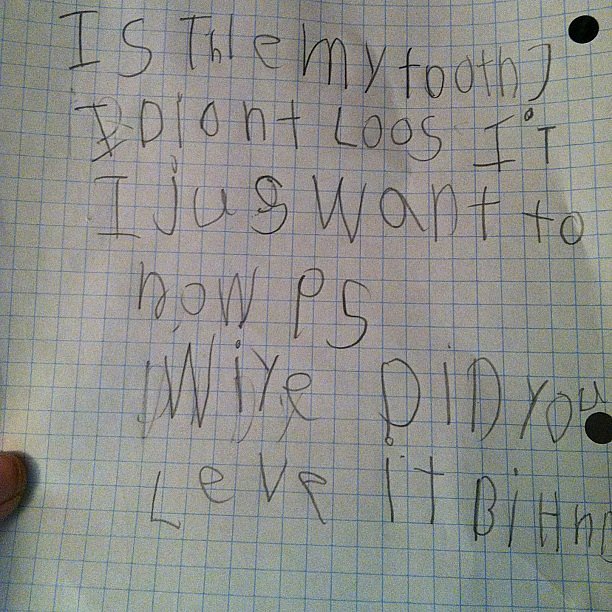 IS The my tooth?
I Diont Loos IT
I jus want to
now PS
Wiye DiD you
Leve it BiHnD